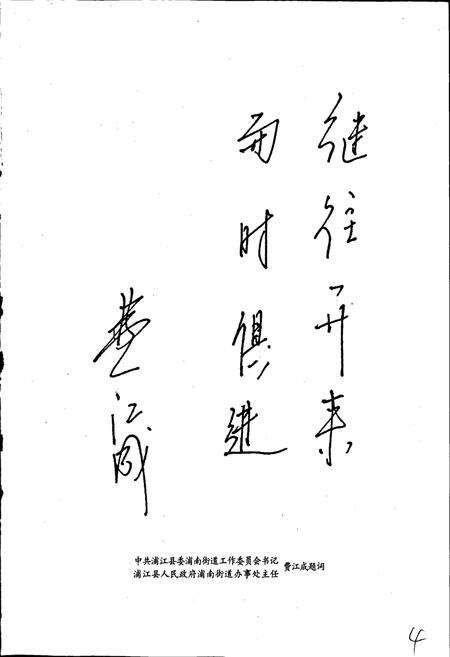 继往开来
与时俱进
费江成
中共浦江县委浦南街道工作委员会书记
浦江县人民政府浦南街道办事处主任
费江成题词
4